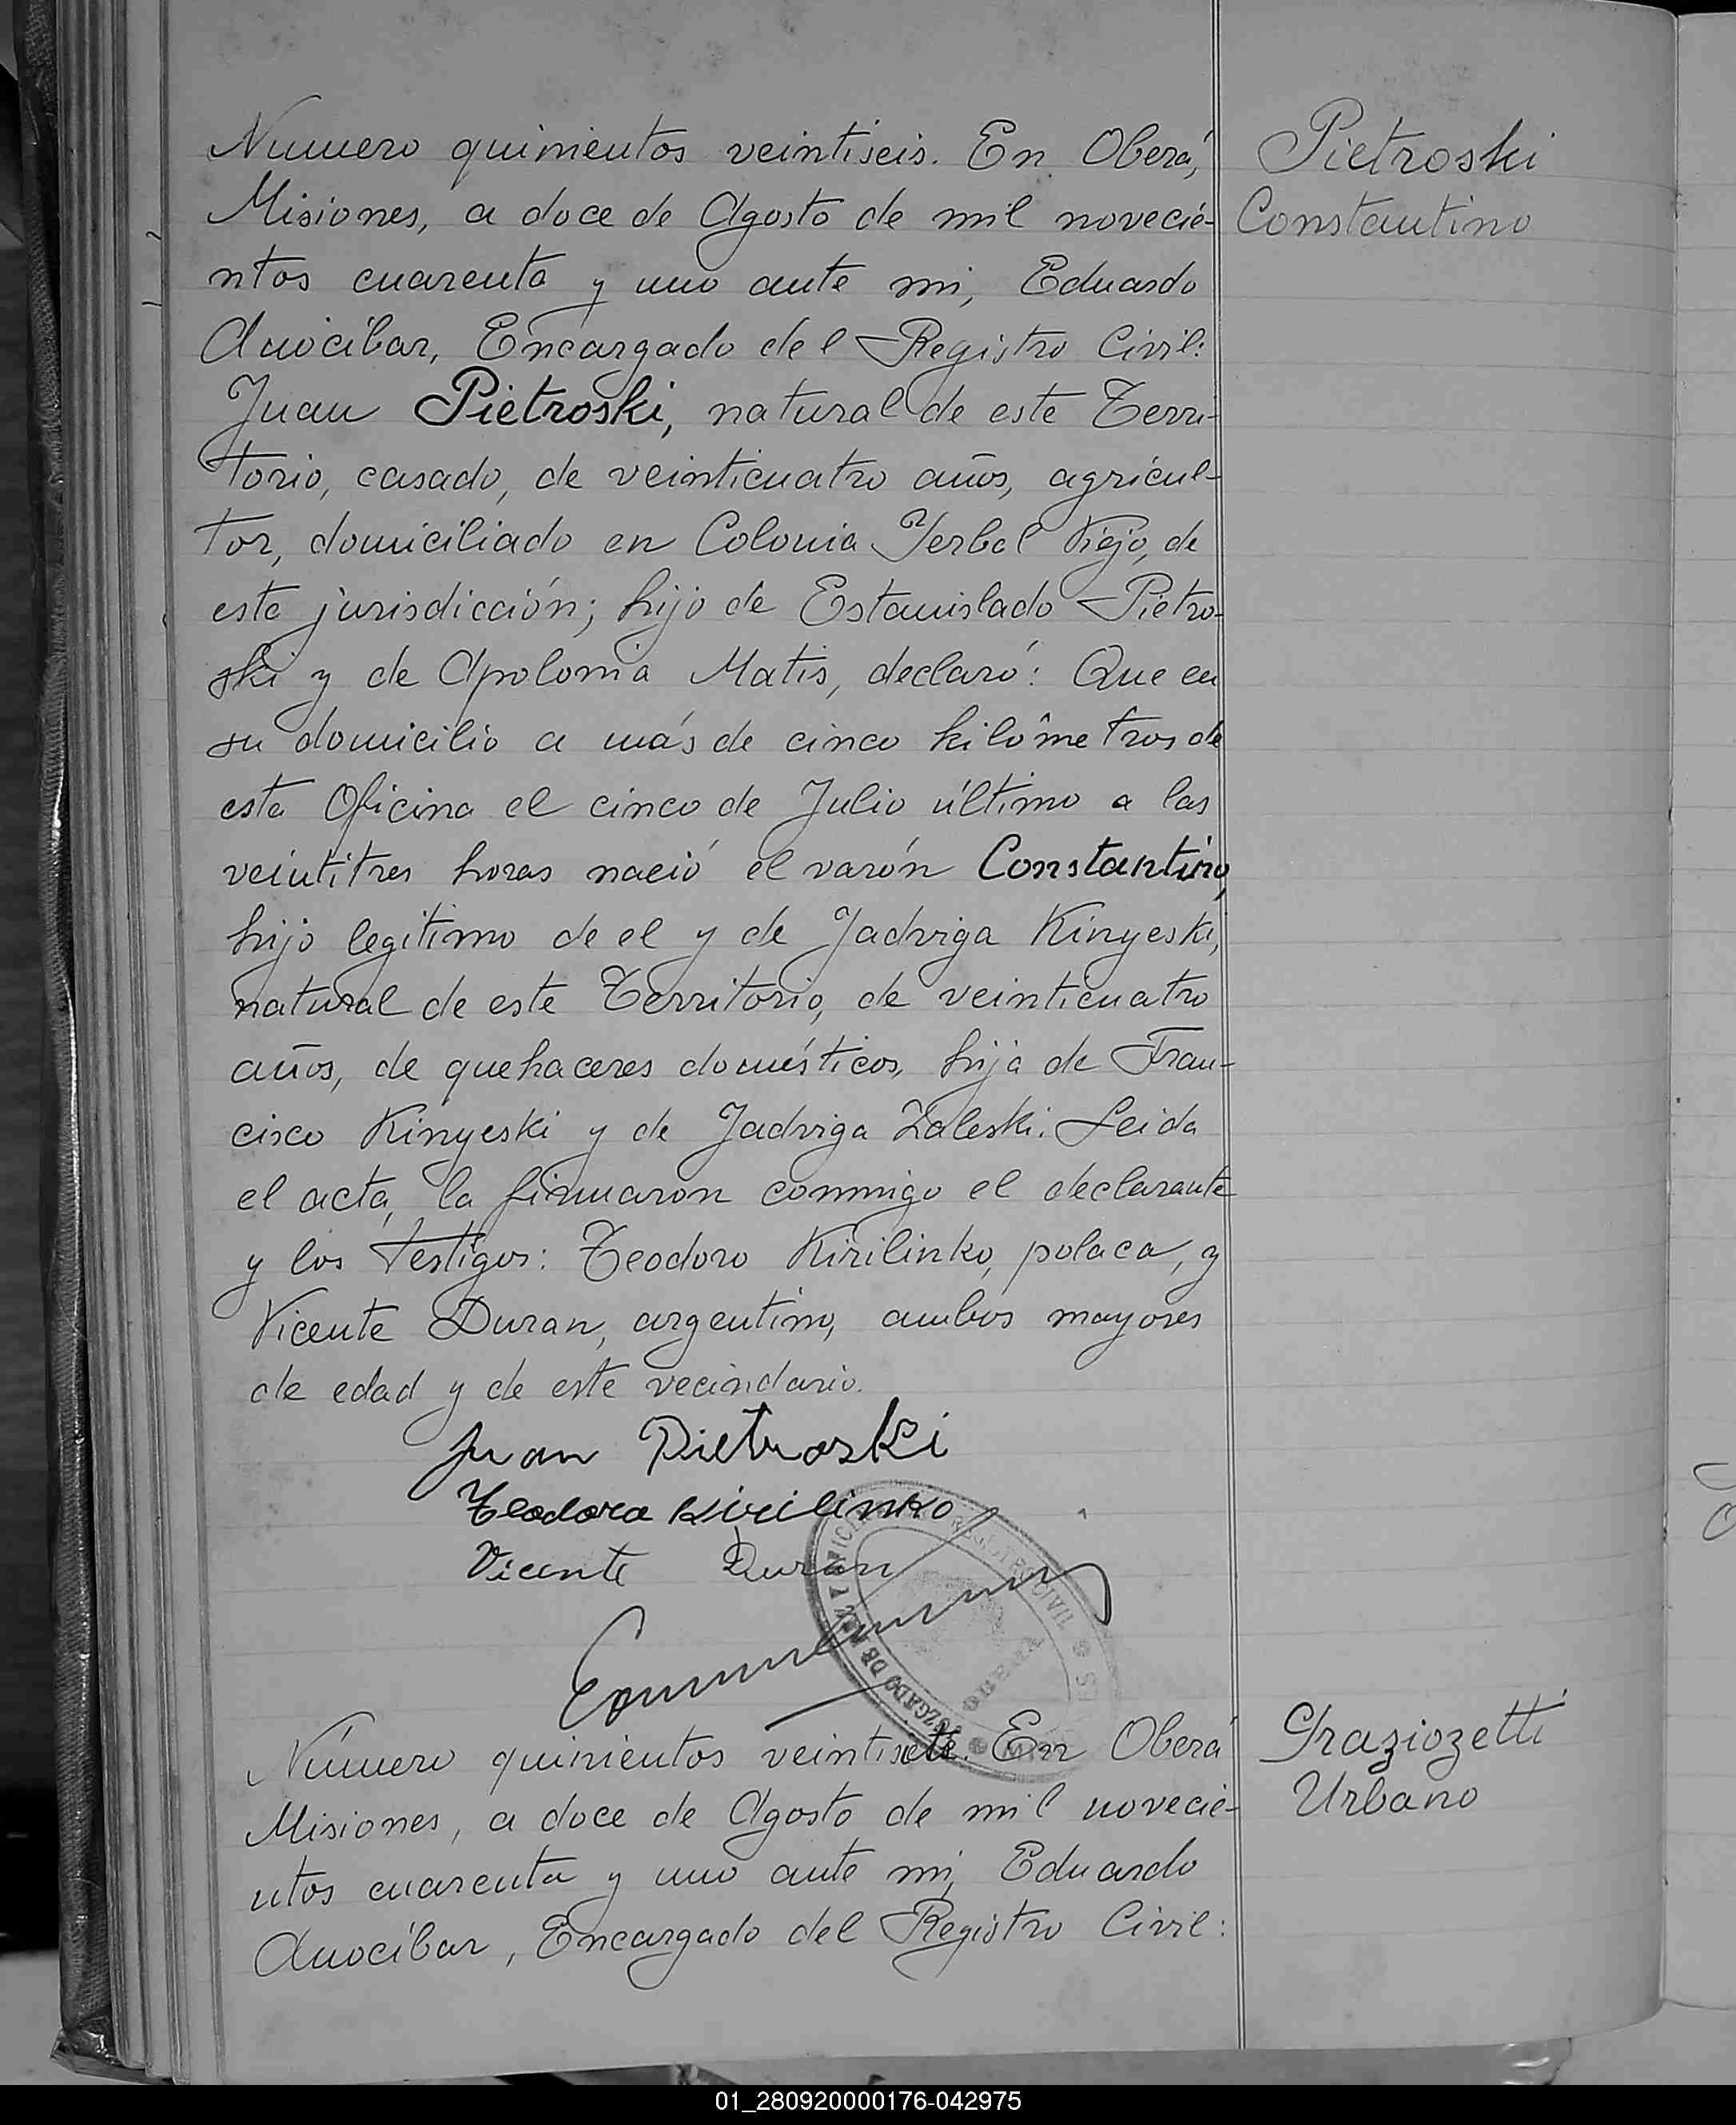 Número quinientos veintiseis. En Oberá,
Pietroski
Misiones, a doce de Agosto de mil novecie-
Constantino
ntos cuarenta y uno ante mi, Eduardo
Anocibar, Encargado del Registro Civil:
Juan Pietroski, natural de este Terri-
torio, casado, de veinticuatro años, agricul-
tor, domiciliado en Colonia Yerbal Viejo, de
esta jurisdicción; hijo de Estanislado Pietro-
ski y de Apolonia Matis, declaró: Que en
su domicilio a más de cinco kilómetros de
esta Oficina el cinco de Julio último a las
veintitres horas nació el varón Constantino,
hijo legitimo de el y de Jadviga Kinyeski,
natural de este Territorio, de veinticuatro
años, de quehaceres domésticos, hija de Fran-
cisco Kinyeski y de Jadviga Zaleski. Leida
el acta, la firmaron conmigo el declarante
y los testigos: Teodoro Kirilinko, polaca, y
Vicente Duran, argentino, ambos mayores
de edad y de este vecindario.
Juan Pietroski
Teodoro Kirilinko
Vicente Duran
JUZGADO DE PAZ
REGISTRO CIVIL
OBERA
Número quinientos veintisiete. En Oberá
Graziozetti
Misiones, a doce de Agosto de mil novecie-
Urbano
ntos cuarenta y uno ante mi, Eduardo
Anocíbar, Encargado del Registro Civil:
01_280920000176-042975